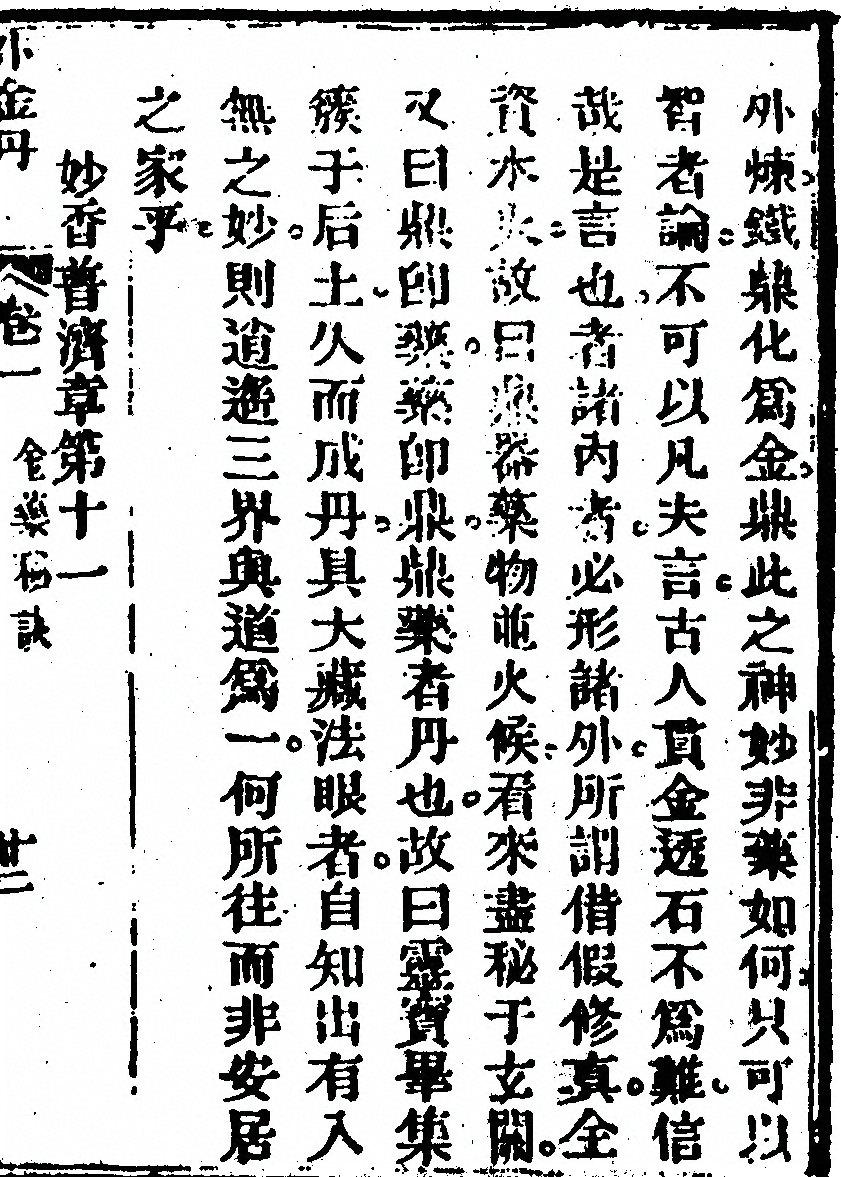 外煉鐵鼎化爲金鼎此之神妙非藥如何只可以
智者論不可以凡夫言古人貫金透石不爲難信
哉是言也者諸内者必形諸外所謂借假修真全
資水火故曰鼎器藥物並火候看來盡秘于玄關
又曰鼎卽藥藥卽鼎鼎藥者丹也故曰靈寶畢集
簇于后土久而成丹具大藏法眼者自知出有入
無之妙則道遊三界與道爲一何所往而非安居
之家乎
妙香普濟章第十一
外金丹
卷一
金藥秘訣
廿二